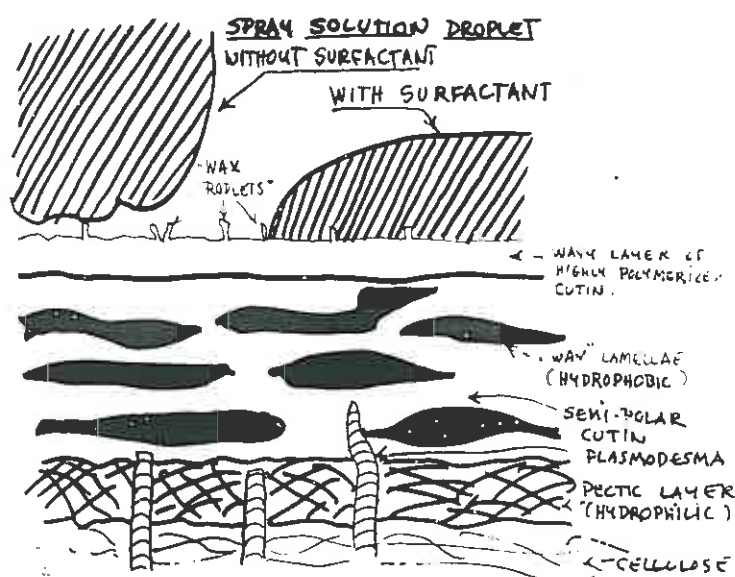 SPRAY SOLUTION DROPLET
WITHOUT SURFACTANT
WITH SURFACTANT
"WAX
RODLETS"
WAXY LAYER OF
HIGHLY POLYMERIZED
CUTIN.
"WAX" LAMELLAE
(HYDROPHOBIC)
SEMI-POLAR
CUTIN
PLASMODESMA
PECTIC LAYER
(HYDROPHILIC)
CELLULOSE